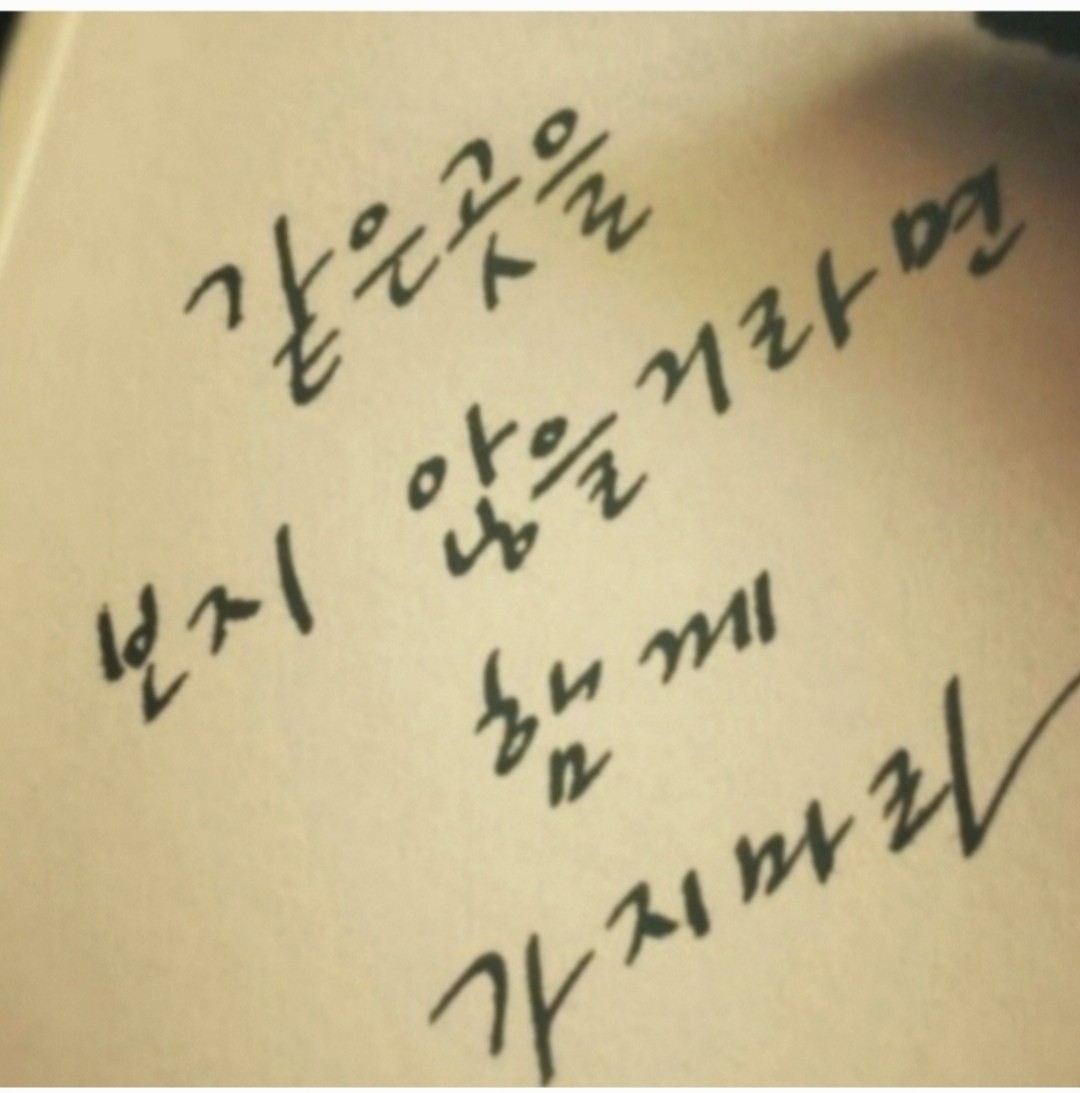 같은곳을
보지 않을거라면
함께
가지마라